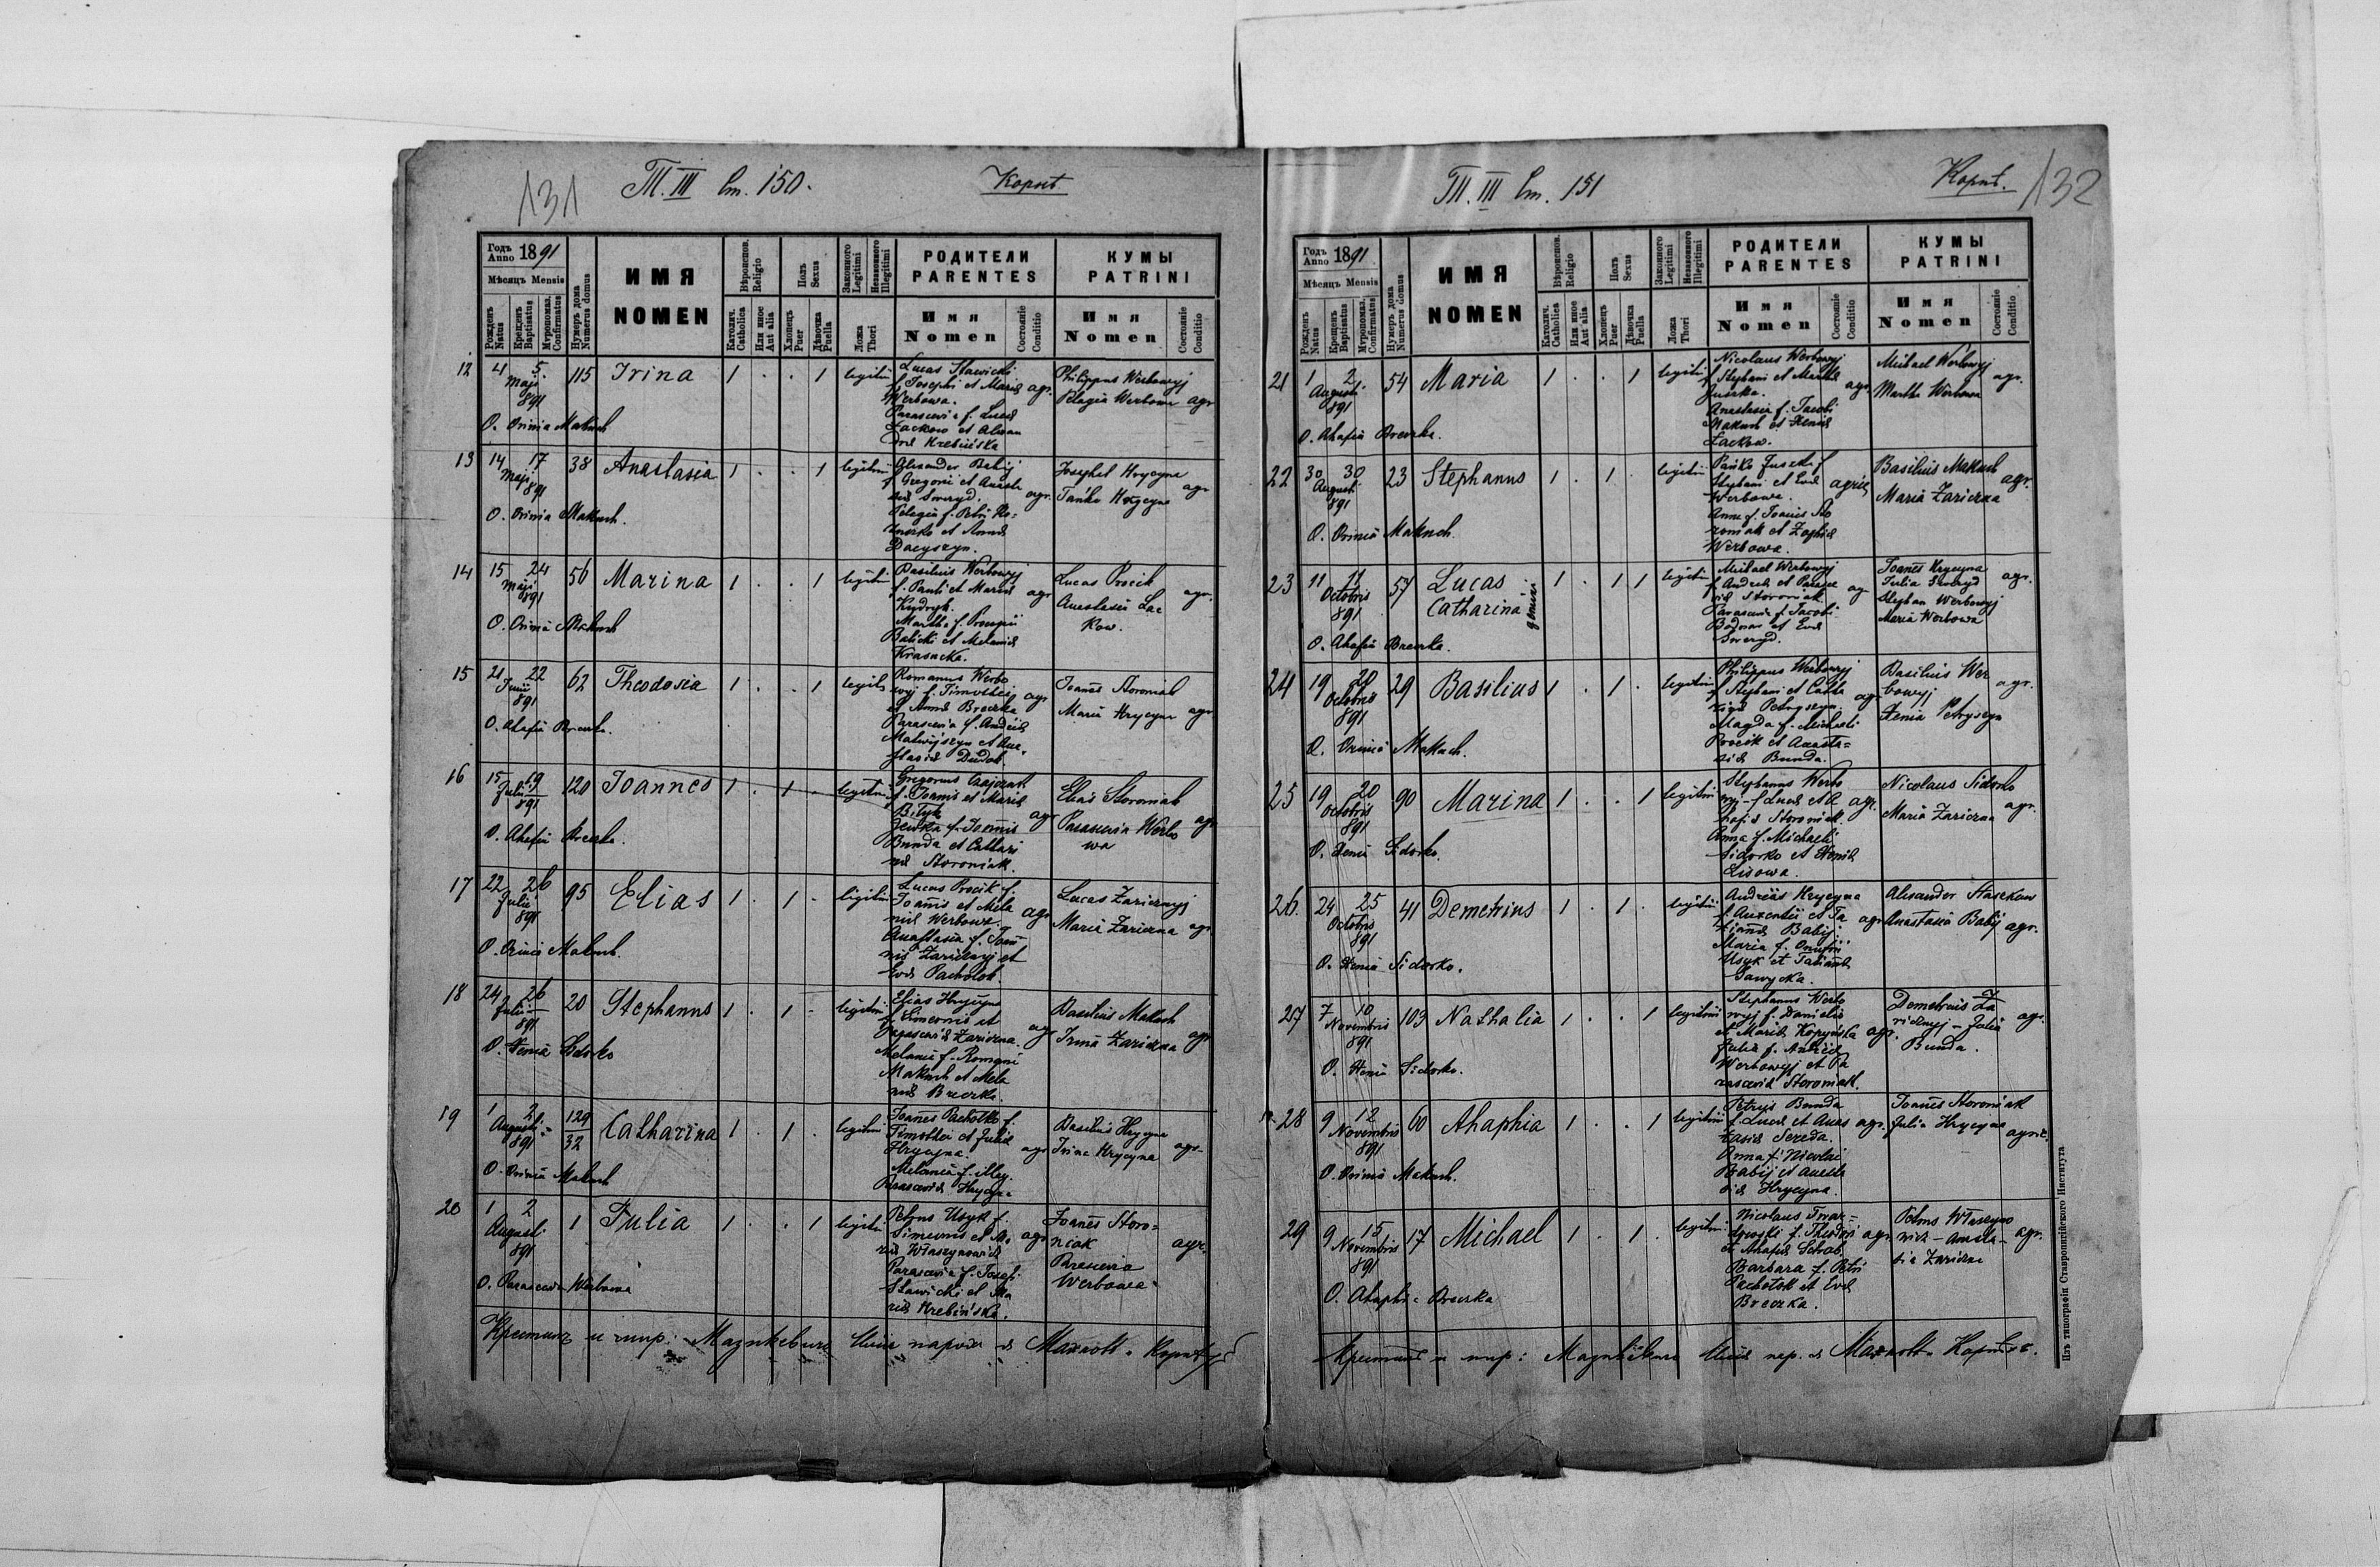 131
Т. III Ст. 150.
Корнѣ
Годъ
Anno 1891
Мѣсяцъ Mensis
Рожденъ
Natus
Крещенъ
Baptisatus
Мѵропомаз.
Confirmatus
Нумеръ дома
Numerus domus
ИМЯ
NOMEN
Вѣроисповѣд.
Religio
Католич.
Catholica
Или иное
Aut alia
Полъ
Sexus
Хлопецъ
Puer
Дѣвочка
Puella
Законного
Legitimi
Незаконного
Illegitimi
Ложа
Thori
РОДИТЕЛИ
PARENTES
Имя
Nomen
Состояніе
Conditio
КУМЫ
PATRINI
Имя
Nomen
Состояніе
Conditio
12 4 5 Maji 891 115 Irina 1 . . 1 legitimi
Lucas Stawicki
f. Josephi et Mariae agr.
Werbowa.
Parascevia f. Lucae
Lackow et Alexan
drae Hrebińska
Philippus Werbowyj
Pelagia Werbowa agr
O. Orinia Makuch
13 14 17 Maji 891 38 Anastasia 1 . . 1 legitimi
Alexander Babij
f. Gregorii et Anasta
siae Smeryd. agr.
Pelagia f. Petri
et Annae
Dacyszyn.
Josephat Hrycyna agr
Hrycyna
O. Orinia Makuch.
14 15 24 Maji 891 56 Marina 1 . . 1 legitimi
Basilius Werbowyj
f. Pauli et Mariae agr
Kydryk.
Martha f. Procopii
Babicki et Melaniae
Krasucka.
Lucas Procik agr.
Anastasia Lac
kow.
O. Orinia Makuch
15 21 22 Junii 891 62 Theodosia 1 . . 1 legitimi
Romanus Werbo
wyj f. Timothei agr
et Annae Breczka
Parascevia f. Andreae
Matwijszyn et Ana
stasiae Dudok.
Joannes Storoniak
Maria Hrycyna agr
O. Ahafia Breczka.
16 15 19 Julii 891 120 Joannes 1 . 1 . legitimi
Gregorius
f. Joannis et Mariae
Bityk agr
f. Joannis
Bunda et Cathari
nae Storoniak.
Elias Storoniak
Parascevia Werbo agr
wa
O. Ahafia Breczka.
17 22 26 Julii 891 95 Elias 1 . 1 . legitimi
Lucas Procik f.
Joannis et Mela
niae Werbowa. agr
Anastasia f. Joan
nis Zaricznyj et
Evae Pacholok.
Lucas Zaricznyj
Maria Zariczna agr
O. Orinia Makuch.
18 24 26 Julii 891 20 Stephanus 1 . 1 . legitimi
Elias Hrycyna
f. Simeonis et
Parasceviae Zariczna. agr
Melania f. Romani
Makuch et Mela
niae Breczka.
Basilius Makuch
Irina Zariczna agr
O. Xenia Sidorko
19 1 2 Augusti 891 129 32 Catharina 1 . 1 . legitimi
Joannes Pacholko f.
Timothei et Juliae
Hrycyna. agr
Melania f. illeg.
Parasceviae Hrycyna
Basilius Hrycyna
Irina Hrycyna agr.
O. Orinia Makuch
20 1 2 Augusti 891 1 Julia 1 . . 1 legitimi
Petrus Usyk f.
Simeonis et Ma agr
riae Właszynowicz
Parascevia f. Josefi
Stawicki et Ma
riae Hrebińska.
Joannes Storo=
niak agr.
Parascevia
Werbowa
O. Parascevia Werbowa
132
Т. III Ст. 151
Корнѣ.
Годъ
Anno 1891
Мѣсяцъ Mensis
Рожденъ
Natus
Крещенъ
Baptisatus
Мѵропомаз.
Confirmatus
Нумеръ дома
Numerus domus
ИМЯ
NOMEN
Вѣроисповѣд.
Religio
Католич.
Catholica
Или иное
Aut alia
Полъ
Sexus
Хлопецъ
Puer
Дѣвочка
Puella
Законного
Legitimi
Незаконного
Illegitimi
Ложа
Thori
РОДИТЕЛИ
PARENTES
Имя
Nomen
Состояніе
Conditio
КУМЫ
PATRINI
Имя
Nomen
Состояніе
Conditio
21 1 2 Augusti 891 54 Maria 1 . . 1 legitimi
Nicolaus Werbowyj
f. Stephani et Marthae agr.
Juszka.
Anastasia f. Jacobi
Makuch et Xeniae
Lackow.
Michael Werbowyj agr.
Martha Werbowa
O. Ahafia Breczka.
22 30 30 Augusti 891 23 Stephanus 1 . 1 . legitimi
Juszka f
Stephani et Evae agric
Werbowa.
Anna f. Joannis Sto
roniak et Zophiae
Werbowa.
Basilius Makuch agr.
Maria Zariczna
O. Orinia Makuch.
23 11 11 Octobris 891 57 Lucas Catharina gemini 1 . 1 1 legitimi
Michael Werbowyj
f. Andreae et Parasce
viae Storoniak agr
Parascevia f. Jacobi
Bodnar et Evae
Smeryd.
Joannes Hrycyna agr.
Julia Smeryd
Stephan Werbowyj
Maria Werbowa
O. Ahafia Breczka.
24 19 20 Octobris 891 29 Basilius 1 . 1 . legitimi
Philippus Werbowyj
f. Stephani et Catha
rinae Petryszyn. agr
Magda f. Michaeli
Procik et Anasta=
siae Bunda.
Basilius Wer agr.
bowyj
Xenia Petryszyn
O. Orinia Makuch.
25 19 20 Octobris 891 90 Marina 1 . . 1 legitimi
Stephanus Werbo
wyj f. Lucae et A agr.
hafiae Storoniak.
Anna f. Michaeli
Sidorko et Xeniae
Lisowa.
Nicolaus Sidorko
Maria Zariczna agr.
O. Xenia Sidorko.
26. 24 25 Octobris 891 41 Demetrius 1 . 1 . legitimi
Andreas Hrycyna
f. Auxentii et Ta agr
tiannae Babij.
Maria f. Onufrii
Usyk et Tatiannae
Sawycka.
Alexander Staszkow
Anastasia Babij agr.
O. Xenia Sidorko.
27 7 10 Novembris 891 103 Nathalia 1 . . 1 legitimi
Stephanus Werbo
wyj f. Danielis
et Mariae Kopyńska agr.
Julia f. Andreae
Werbowyj et Pa
rasceviae Storoniak.
Demetrius Za
ricznyj - Julia agr.
Bunda.
O. Xenia Sidorko.
28 9 12 Novembris 891 60 Ahaphia 1 . . 1 legitimi
Petrus Bunda
f. Lucae et Anas agr.
tasiae Sereda.
Anna f. Nicolai
Babij et Anasta
siae Hrycyna.
Joannes Storoniak
Julia Hrycyna agric.
O. Orinia Makuch.
29 9 15 Novembris 891 17 Michael 1 . 1 . legitimi
Nicolaus
f. Theodori agr
et Ahafiae
Barbara f. Petri
Pacholok et Evae
Breczka.
Petrus Własyno
wicz - Anasta- agr.
sia Zariczna
O. Ahaphia Breczka
Изъ типографіи Ставропигійского Института